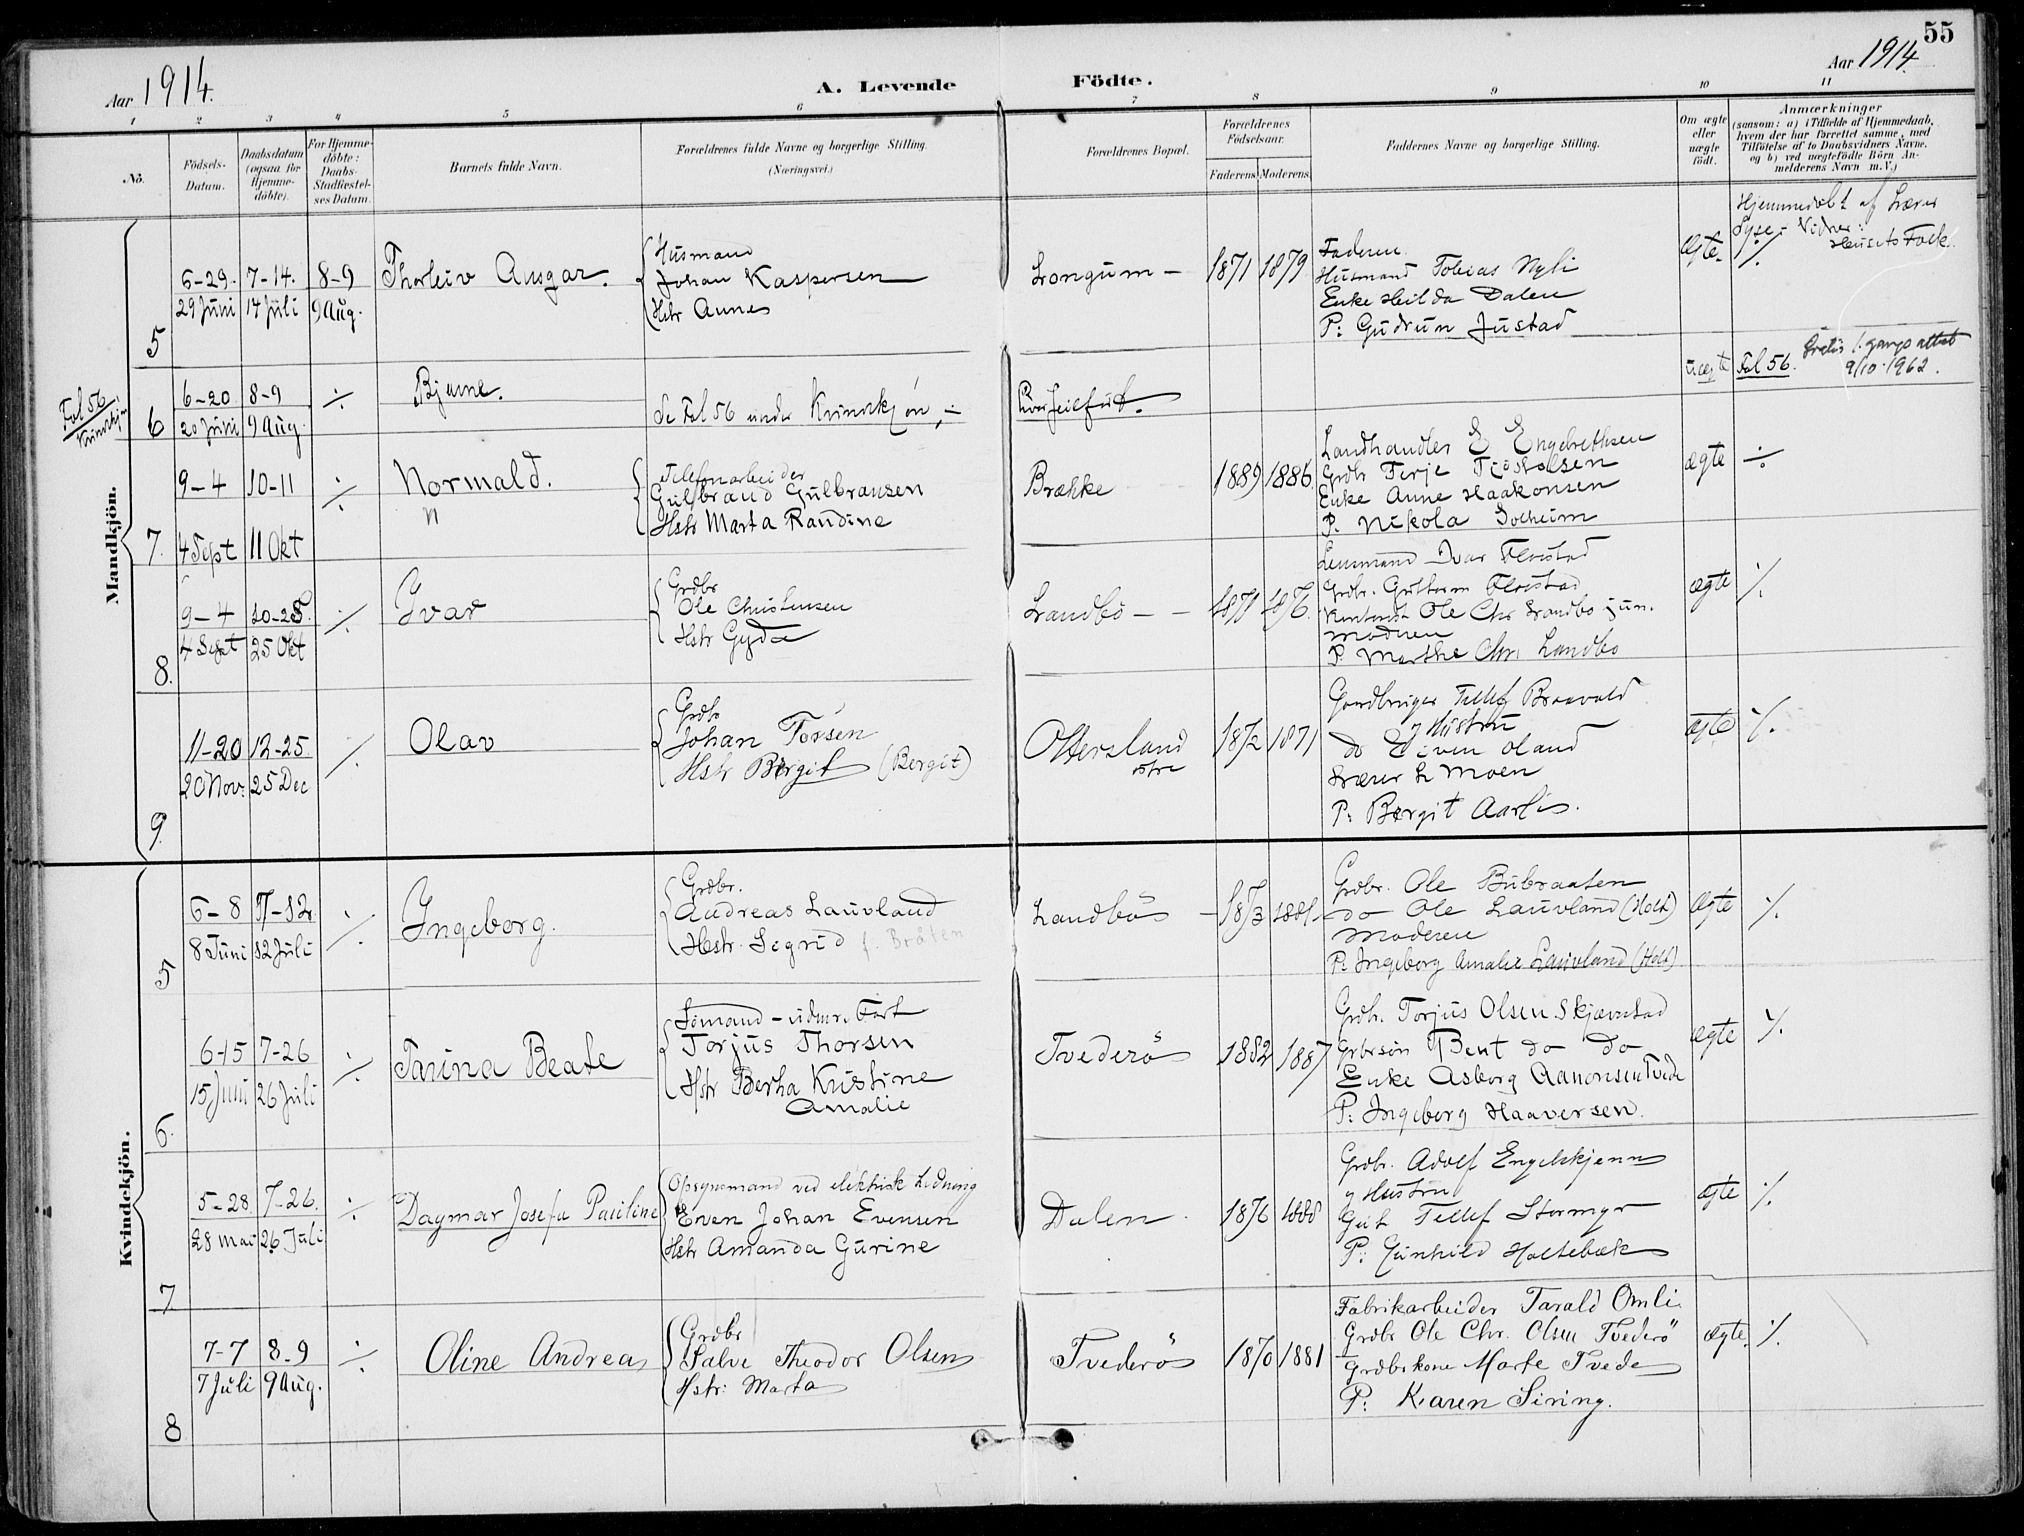 55
Aar 1914.
A. Levende Födte.
Aar 1914.
1 2 3 4 5 6 7 8 9 10 11
No.
Födsels-Datum.
Daabsdatum (ogsaa for Hjemme-döbte).
For Hjemme-döbte: Daabs-Stadfæstel-ses Datum.
Barnets fulde Navn.
Forældrenes fulde Navne og borgerlige Stilling.
(Næringsvei.)
Forældrenes Bopæl.
Forældrenes Födselsaar.
Faderens Moderens
Faddernes Navne og borgerlige Stilling.
Om ægte eller uægte födt.
Anmærkninger
(saasom: a) i Tilfælde af Hjemmedaab,
hvem der har forrettet samme, med
Tilföielse af to Daabsvidners Navne,
og b) ved uægtefödte Börn An-
melderens Navn m. V.)
Mandkjön.
5
6-29. 7-14. 8-9
29 Juni 14 Juli 9 Aug.
Thorleiv Ansgar.
Husmand
Johan Kaspersen
Hstr Anne
Longum -
1871 1879
Faderen
Husmand Tobias Nyli
Enke Hilda Dalen
P: Gudrun Justad
Ægte.
Hjemmedøbt af Lærer
Syse - Vidner:
Husets Folk.
Fol 56
Kvindkjøn
6
6-20 8-9
20 Juni 9 Aug.
÷
Bjarne.
Se Fol 56 under Kvindekjøn,
feilført.
uægte
Fol 56.
1. gangs attest
9/10-1962.
7.
9-4 10-11
4 Sept 11 Okt
÷
Normald.
n
Telefonarbeider
Gulbrand Gulbransen
Hstr Marta Randine
Brække
1889 1886
Landhandler E Engebrethsen
Grdbr Terje Tjøstolsen
Enke Anne Haakonsen
P. Nikola Solheim
ægte ÷
8.
9-4 10-25.
4 Sept 25 Okt
÷
Ivar
Grdbr
Ole Christensen
Hstr Gyda
Landbö - -
1871 1876
Lensmand Ivar Flosstad
Grdbr. Guttorm Flosstad
Ole Chr Landbö jun.
Moderen
P. Marthe Chr. Landbö
ægte
9.
11-20 12-25.
20 Nov. 25 Dec
÷
Olav
Grdbr
Johan Torsen
Hstr Birgit (Bergit)
Ottersland
østre
1872 1871
Gaardbruger Tellef Braavold
og Hustru
do Even Oland
Lærer L Moen
P: Bergit Aarlis.
ægte
Kvindekjön.
5
6-8 7-12.
8 Juni 12 Juli
÷
Ingeborg.
Grdbr.
Andreas Lauvland
Hstr. Segrid f. Bråten
Landbö
1873 1881
Grdbr. Ole Bubraaten
do Ole Lauvland (Holt)
Moderen
P: Ingeborg Amalie Lauvland (Holt)
Ægte
6.
6-15 7-26
15 Juni 26 Juli
÷
Tarina Beate
Sömand - udenr. Fart
Torjus Thorsen
Hstr Bertha Kristine
Amalie
Tvederö
1882 1887
Grdbr. Torjus Olsen Skjævestad
Grbrsøn Bent do do
Enke Asborg Aanonsen Tvede
P: Ingeborg Haaversen.
ægte
7
5-28. 7-26.
28 Mai 26 Juli
÷
Dagmar Josefa Pauline
Opsynsmand ved elektrisk Ledning
Even Johan Evensen
Hstr Amanda Gurine
Dalen
1876 1888
Grdbr. Adolf Engelskjønn
og Hustru
Gut Tellef Stormyr
P: Gunhild Holtebæk
Ægte
8
7-7 8-9
7 Juli 9 Aug.
÷
Oline Andrea
Grdbr
Salve Theodor Olsen
Hstr: Marta
Tvederö
1870 1881
Fabrikarbeider Tarald Omli
Grdbr Ole Chr. Olsen Tvederö
Grdbrkone Marte Tvede
P: Karen Siring.
ægte.